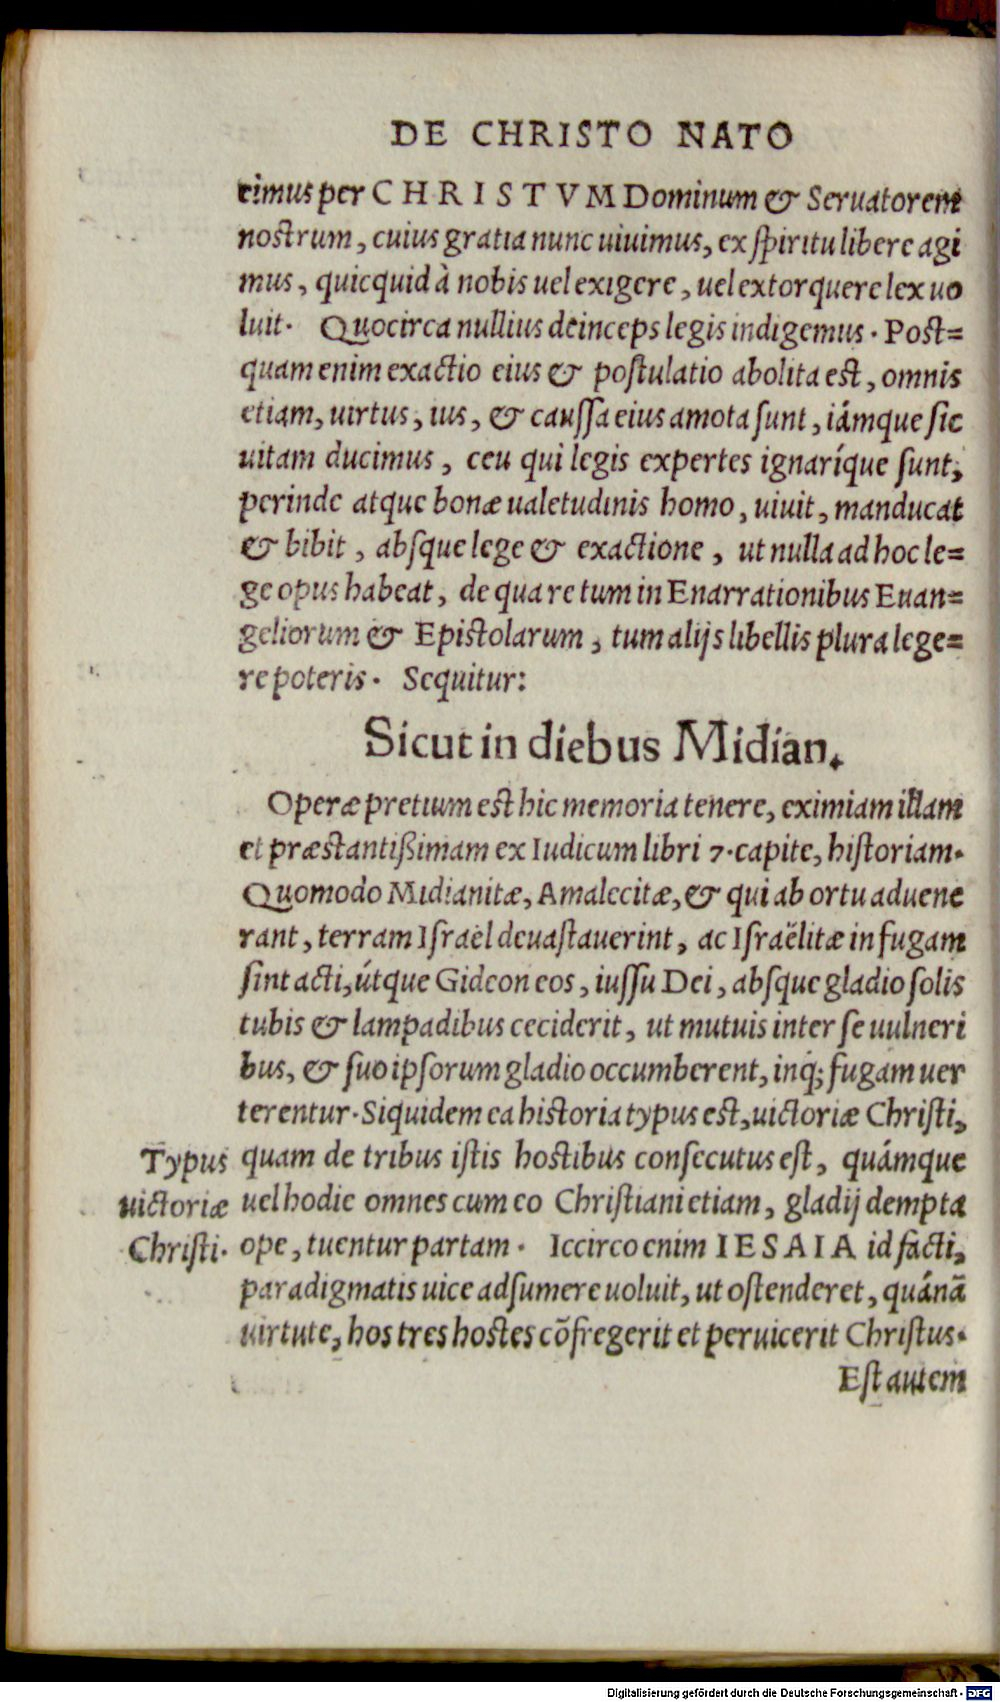 DE CHRISTO NATO
cimus per CHRISTVM Dominum & Seruatorem
nostrum, cuius gratia nunc uiuimus, ex spiritu libere agi
mus, quicquid à nobis uel exigere, uel extorquere lex uo
luit. Quocirca nullius deinceps legis indigemus. Post=
quam enim exactio eius & postulatio abolita est, omnis
etiam, uirtus, ius, & caussa eius amota sunt, iámque sic
uitam ducimus, ceu qui legis expertes ignaríque sunt,
perinde atque bonæ ualetudinis homo, uiuit, manducat
& bibit, absque lege & exactione, ut nulla ad hoc le=
ge opus habeat, de qua re tum in Enarrationibus Euan=
geliorum & Epistolarum, tum alijs libellis plura lege=
re poteris. Sequitur:
Sicut in diebus Midian.
Operæ pretium est hic memoria tenere, eximiam illam
et præstantißimam ex Iudicum libri 7. capite, historiam.
Quomodo Midianitæ, Amalecitæ, & qui ab ortu aduene
rant, terram Israël deuastauerint, ac Israëlitæ in fugam
sint acti, útque Gideon eos, iussu Dei, absque gladio solis
tubis & lampadibus ceciderit, ut mutuis inter se uulneri
bus, & suo ipsorum gladio occumberent, inq; fugam uer
terentur. Siquidem ea historia typus est, uictoriæ Christi,
Typus quam de tribus istis hostibus consecutus est, quámque
uictoriæ uel hodie omnes cum eo Christiani etiam, gladij dempta
Christi. ope, tuentur partam. Iccirco enim IESAIA id facti,
paradigmatis uice adsumere uoluit, ut ostenderet, quánã
uirtute, hos tres hostes cõfregerit et peruicerit Christus.
Est autem
Digitalisierung gefördert durch die Deutsche Forschungsgemeinschaft - DFG